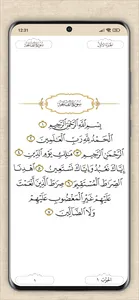 12:01
سُورَةُ الفَاتِحَةِ
الجزء الأول
سُورَةُ الفَاتِحَةِ
بِسْمِ اللَّهِ الرَّحْمَٰنِ الرَّحِيمِ ١
الْحَمْدُ لِلَّهِ رَبِّ الْعَالَمِينَ ٢
الرَّحْمَٰنِ الرَّحِيمِ ٣ مَالِكِ يَوْمِ الدِّينِ ٤
إِيَّاكَ نَعْبُدُ وَإِيَّاكَ نَسْتَعِينُ ٥ اهْدِنَا
الصِّرَاطَ الْمُسْتَقِيمَ ٦ صِرَاطَ الَّذِينَ أَنْعَمْتَ
عَلَيْهِمْ غَيْرِ الْمَغْضُوبِ عَلَيْهِمْ
وَلَا الضَّالِّينَ ٧
الحزب ١
١